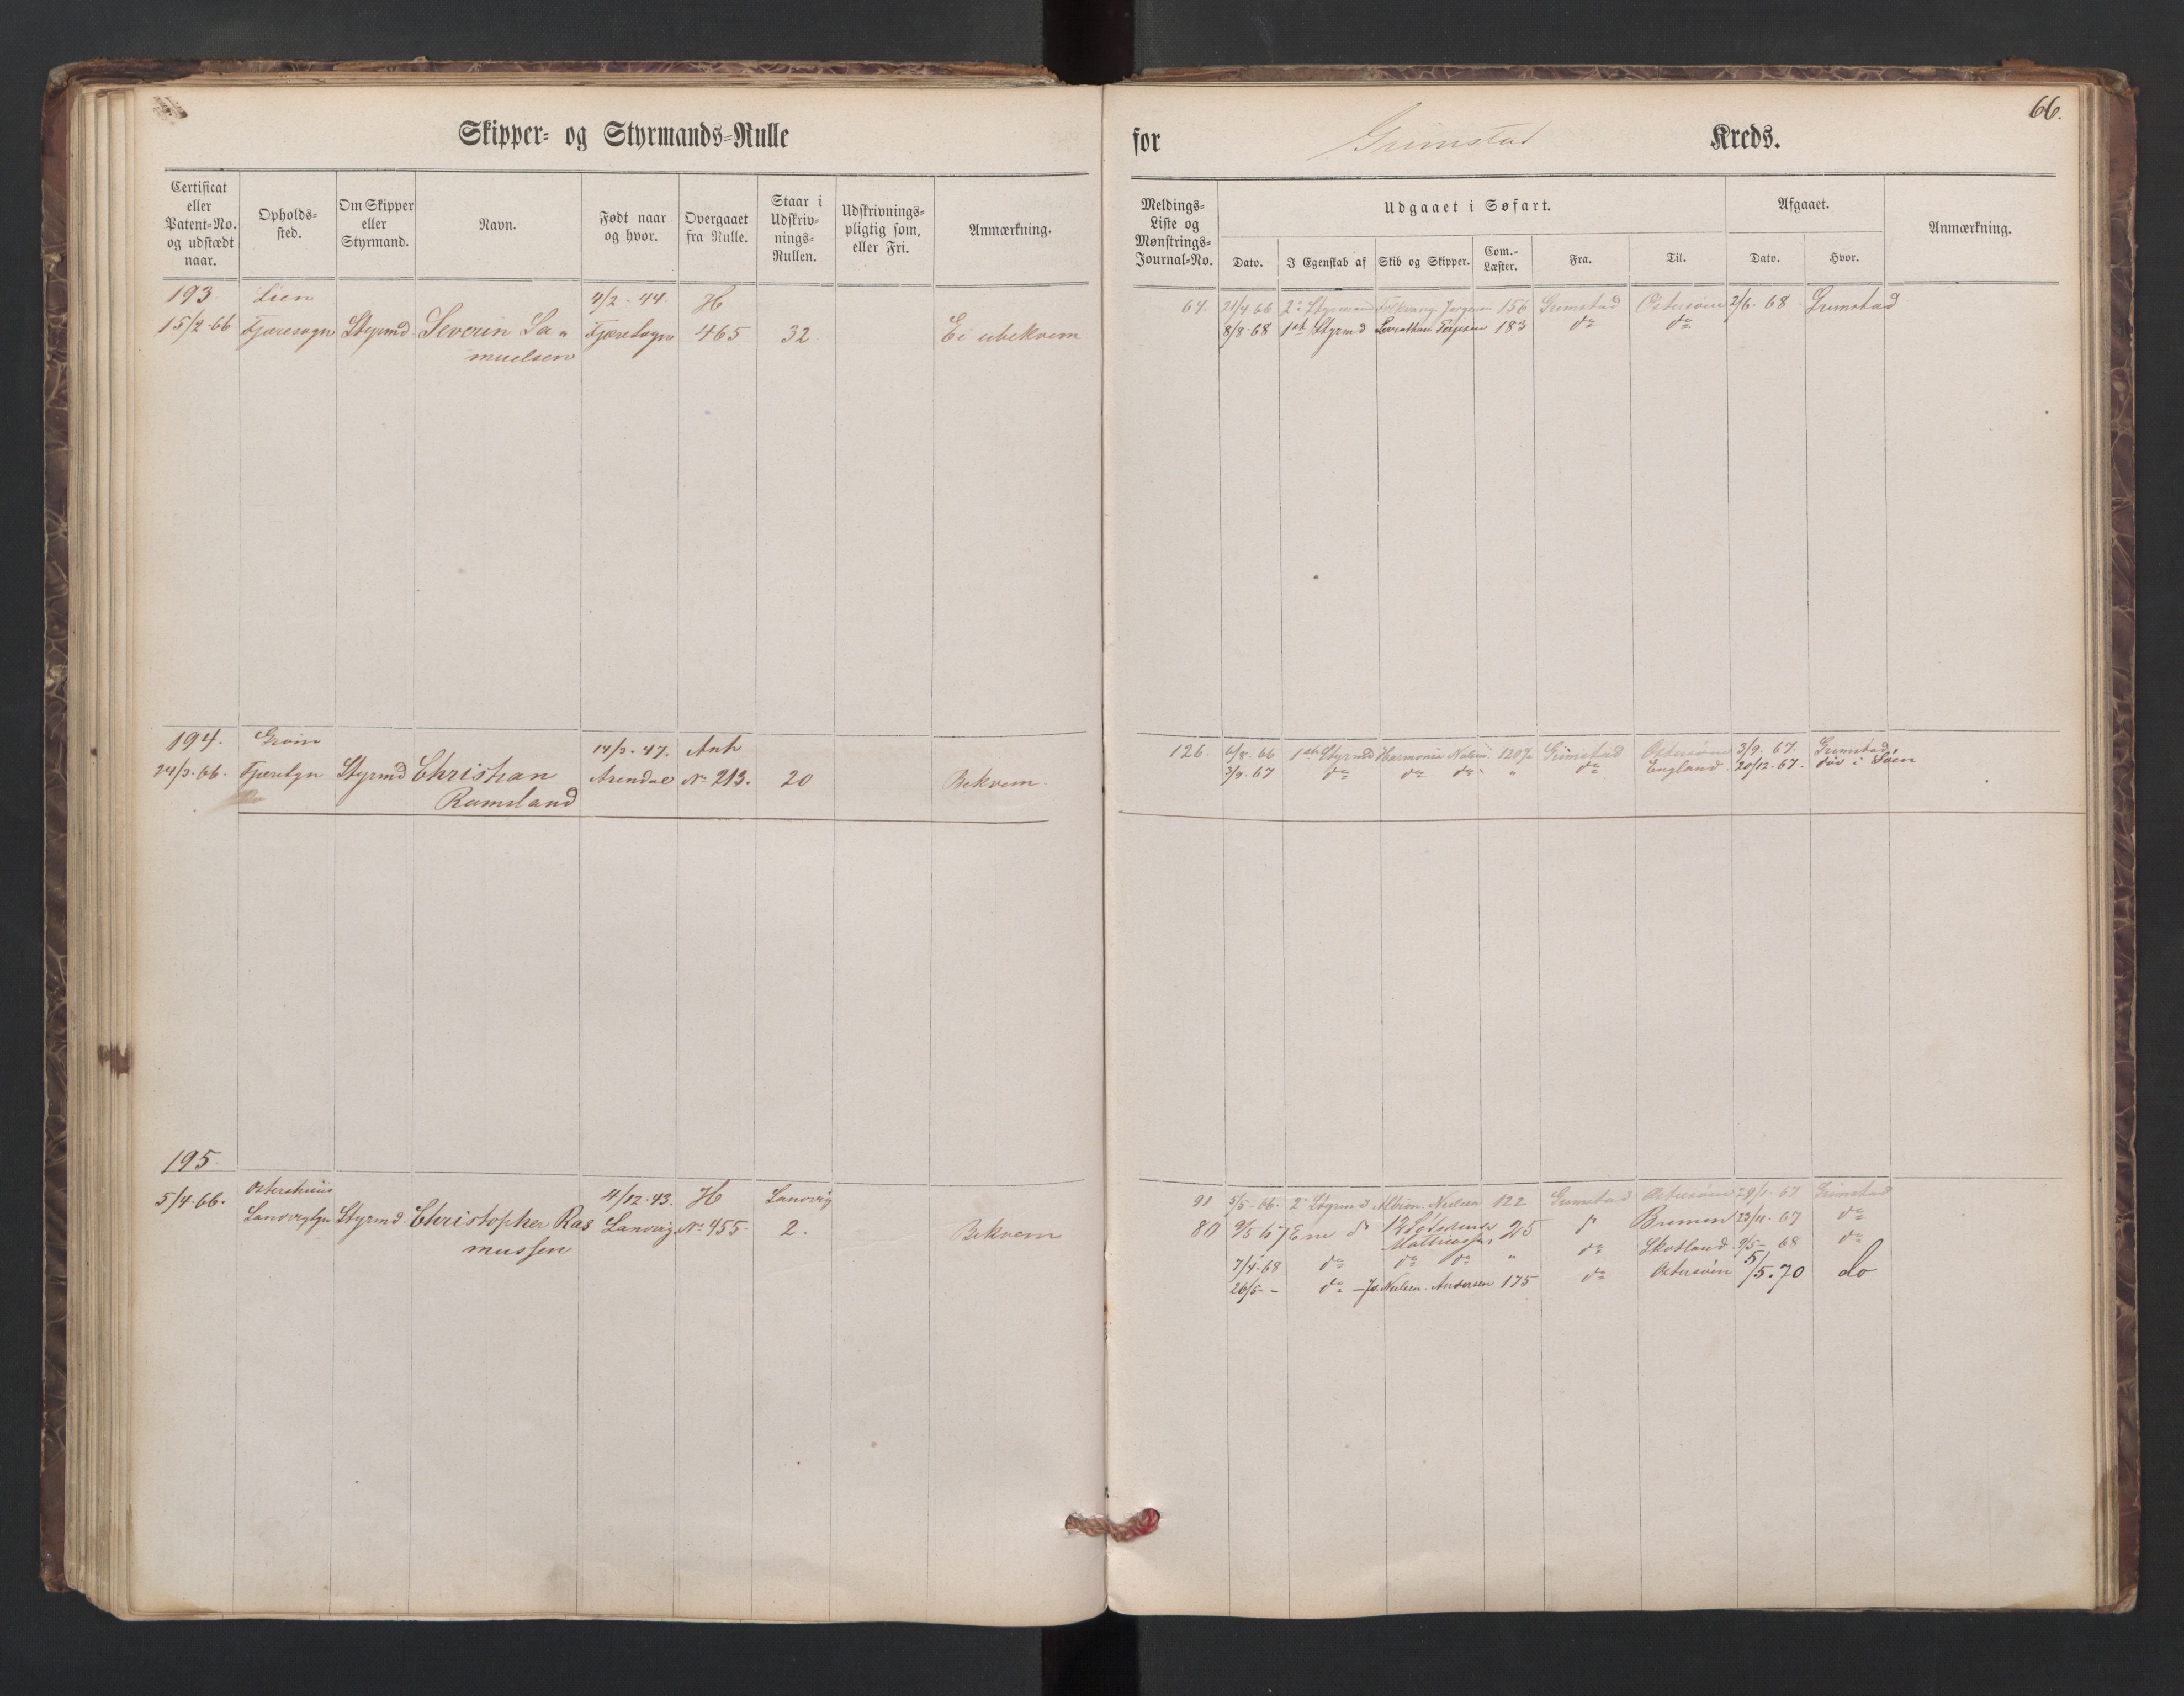 66.
Skipper- og Styrmands-Rulle for Grimstad Kreds.
Certificat eller Patent-No. og udstædt naar.
Opholds-sted.
Om Skipper eller Styrmand.
Navn.
Født naar og hvor.
Overgaaet fra Rulle.
Staar i Udskriv-nings-Rullen.
Udskrivnings-pligtig som, eller Fri.
Anmærkning.
Meldings-Liste og Mønstrings-Journal-No.
Udgaaet i Søfart.
Dato.
I Egenskab af
Skib og Skipper.
Com.-Læster.
Fra.
Til.
Afgaaet.
Dato.
Hvor.
Anmærkning.
193 Lien 4/2 - 44. H
15/2-66 Fjæresogn Styrmd Severin Sa- Fjæresogn 465 32 Ei ubekvem
muelsen
64. 21/4 66 2n Styrmand Jørgensen 156 Grimstad Østersøen 2/6 - 68 Grimstad
8/8-68 1ste Styrmd Leviathan Terjesen 183 do do
194. Grom 14/3. 47. Anh
24/3-66. Fjæresgn Styrmd Christian Arendal No 213. 20 Bekvem.
Ramsland
126. 6/8. 66 1ste Styrmd Harmonia Nielsen 120½ Grimstad Østersøen 3/9. 67. Grimstad
3/9. 67 do do do " do England 20/12. 67. død i Søen
195.
5/4-66. Østerhuus 4/12-43. H Landvig
Landvigsgn Styrmd. Christopher Ras Landvig No 455. 2. Bekvem
mussen
91 5/5-66. 2n Styrmd Albion Nielsen 122 Grimstad Østersøen 29/1-67 Grimstad
80 9/5 67 Ene do Mathiassen 25 Bremen 23/11. 67 do
7/4-68 do do do " do Skotland 9/5- 68 do
26/5- - do Jo. Nielsen. Andersen 175 do Østersøen 5/5.70 do